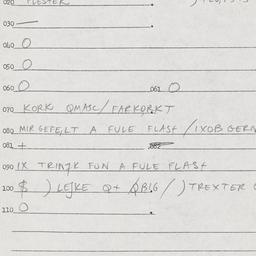 020 PLESTER
030 —
040 O
050 O
060 O 061 O
070 KORK QMASC / FARKORKT
080 MIR GEFELT A FULE FLASH / IXOB GERN
081 +
090 IX TRINJK FUN A FULE FLASH
100 $ ) LEJKE Q+ QBIG / ) TREXTER
110 O